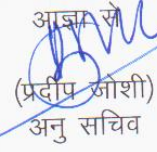 आज्ञा से
(प्रदीप जोशी)
अनु सचिव